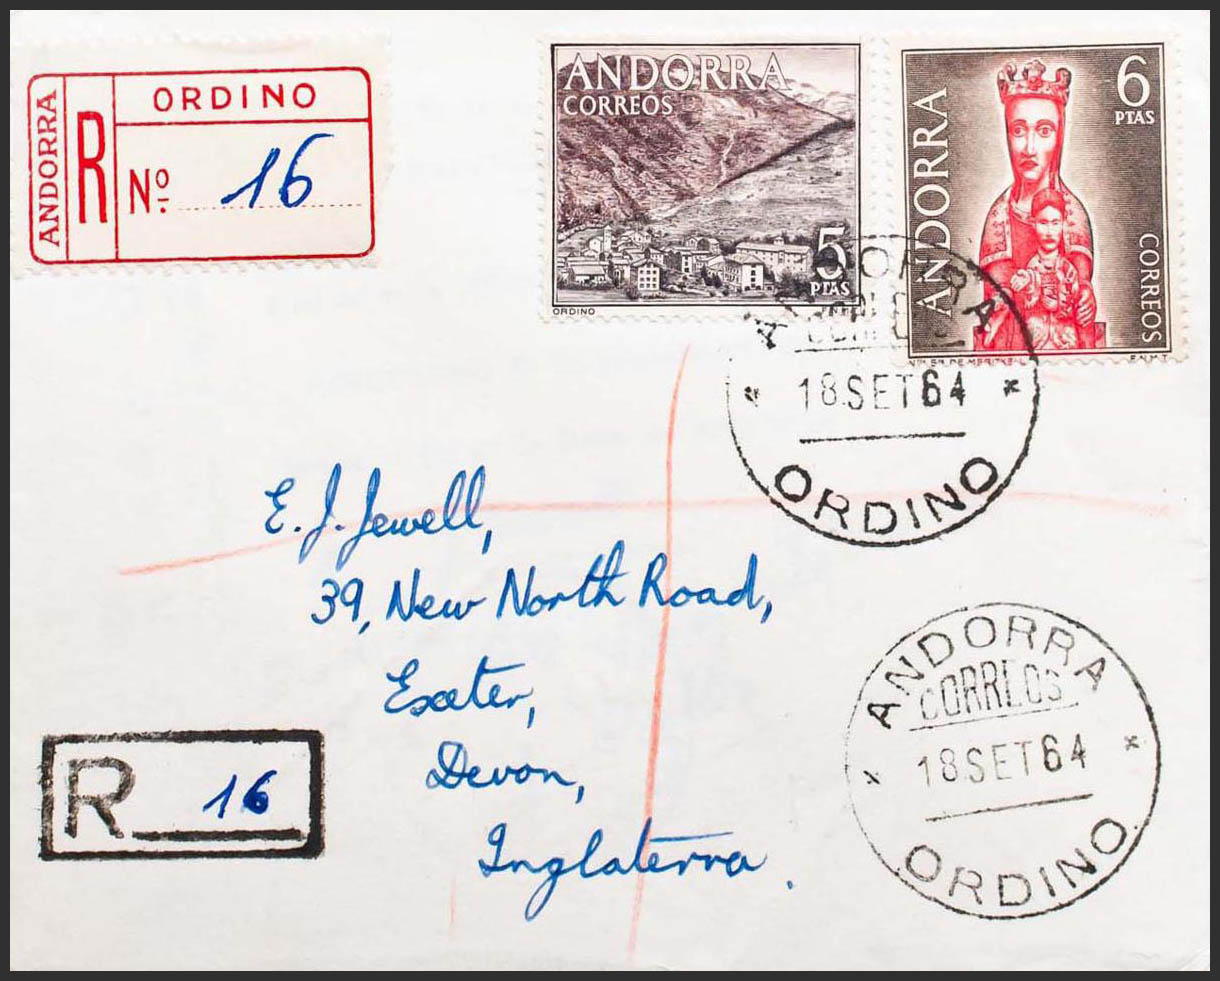 ANDORRA
R
ORDINO
No. 16
ANDORRA
CORREOS
5
PTAS
ORDINO
ANDORRA
6
PTAS
CORREOS
F.N.M.T.
ANDORRA
CORREOS
18 SET 64
ORDINO
E. J. Jewell,
39, New North Road,
Exeter,
Devon,
Inglaterra.
R 16
ANDORRA
CORREOS
18 SET 64
ORDINO